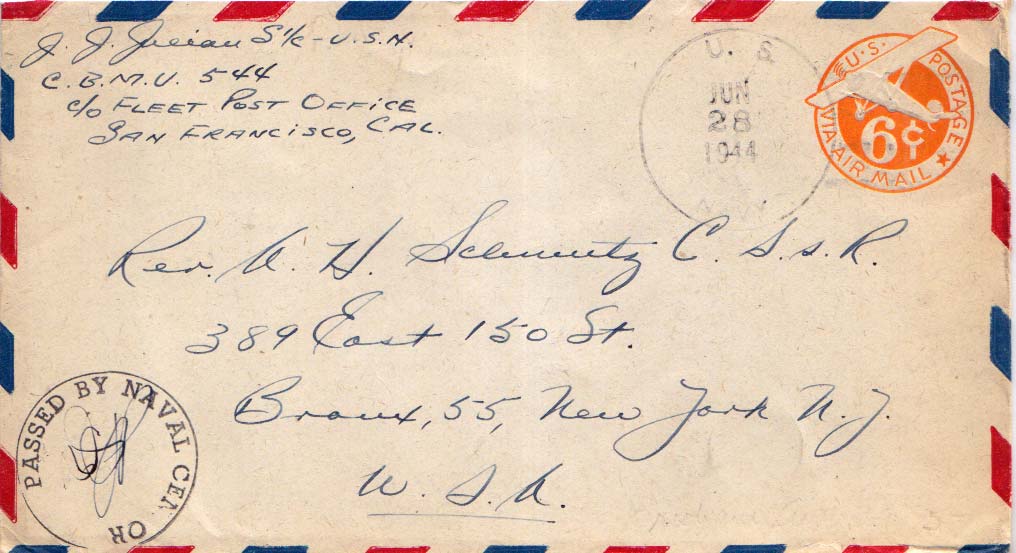 J. J. Julian S1/c - U.S.N.
C.B.M.U. 544
c/o FLEET POST OFFICE
SAN FRANCISCO, CAL.
U. S.
JUN
28
1944
U.S. POSTAGE
6¢
VIA AIR MAIL
Rev. A. H. Schmutz C. S.s.R.
389 East 150 St.
Bronx, 55, New York N.Y.
U.S.A.
PASSED BY NAVAL CEN OR